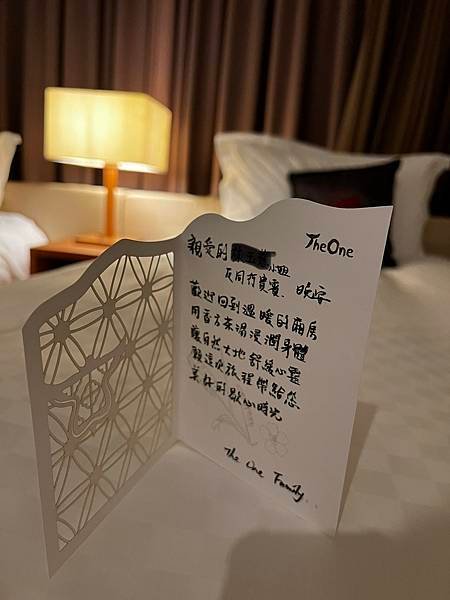 TheOne
親愛的 小姐
及同行貴賓、晚安
歡迎回到溫暖的廂房
用香方茶湯浸潤身體
讓自然大地舒緩心靈
願這次旅程帶給您
美好的歇心時光
The One Family.